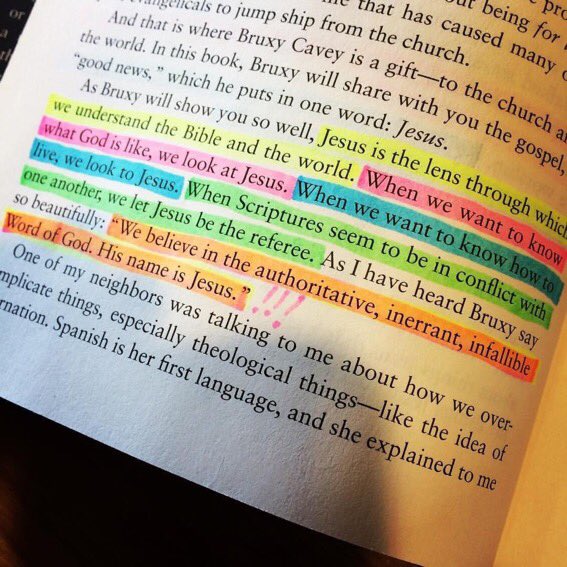 or
a
ut being for
me that has caused many
evangelicals to jump ship from the church.
And that is where Bruxy Cavey is a gift—to the church
the world. In this book, Bruxy will share with you the gospel,
"good news," which he puts in one word: Jesus.
As Bruxy will show you so well, Jesus is the lens through which
we understand the Bible and the world. When we want to know
what God is like, we look at Jesus. When we want to know how to
live, we look to Jesus. When Scriptures seem to be in conflict with
one another, we let Jesus be the referee. As I have heard Bruxy say
so beautifully: "We believe in the authoritative, inerrant, infallible
Word of God. His name is Jesus." !!!
One of my neighbors was talking to me about how we over-
mplicate things, especially theological things—like the idea of
rnation. Spanish is her first language, and she explained to me